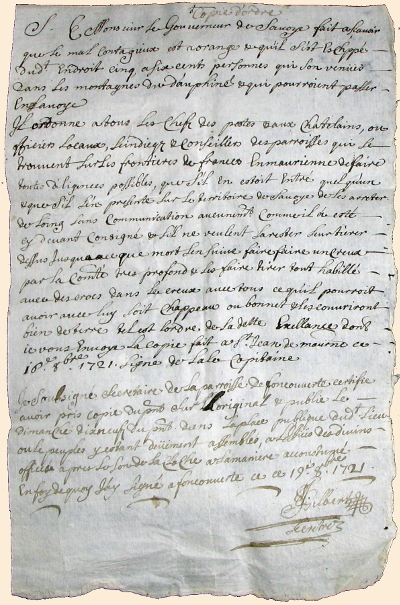 Copie dordre
S. E. Monsieur le Gouverneur de Savoye fait asavoir
que le mal Contagieux est a orange et quil s'est Eschappe
dudt Endroit cinq a six cents personnes qui son venues
dans les montagnes du dauphiné et qui pourroient passer
En Savoye
Il ordonne a tous les Chefs des postes et aux Chatelains, ou
officiers Locaux, scindicqs et Conseillers des parroisses qui se
trouvent sur les frontieres de france En maurienne de faire
toutes diligences possibles, que s'il En estoit Entré quelqu'un
et que s'il s'en presente sur le territoire de Savoye de les arreter
de Loing sans Communication aucune
cy devant Consigné et s'ils ne veulent s'arrester
dessus jusqua ce que mort sen suive faire faire un Creux
par la Comté tres profond et les faire tirer tout habillé
avec des crocs dans le creux avec tous ce qu'il pourroit
avoir avec luy soit Chappeau ou bonnet et les couvriront
bien de terre tel est lordre de la dette Exellance dont
je vous envoye la Copie fait a St Jean de maurne ce
18e 8bre 1721. Signé de Lale Capitaine
Je Soubsigne Secretaire de La parroisse de foncouverte certifie
avoir pris copie du pnt Sur Loriginal et publié le
dimanche dixneuf du pnt dans La place publique dudt Lieu
ou le peuple y estant deuement assemblés, a des divins
offices apres le son de La Cloche a la maniere accoutumé
En foy de quoy Jay Signé a foncouverte ce 19e 8bre 1721
Gilbert